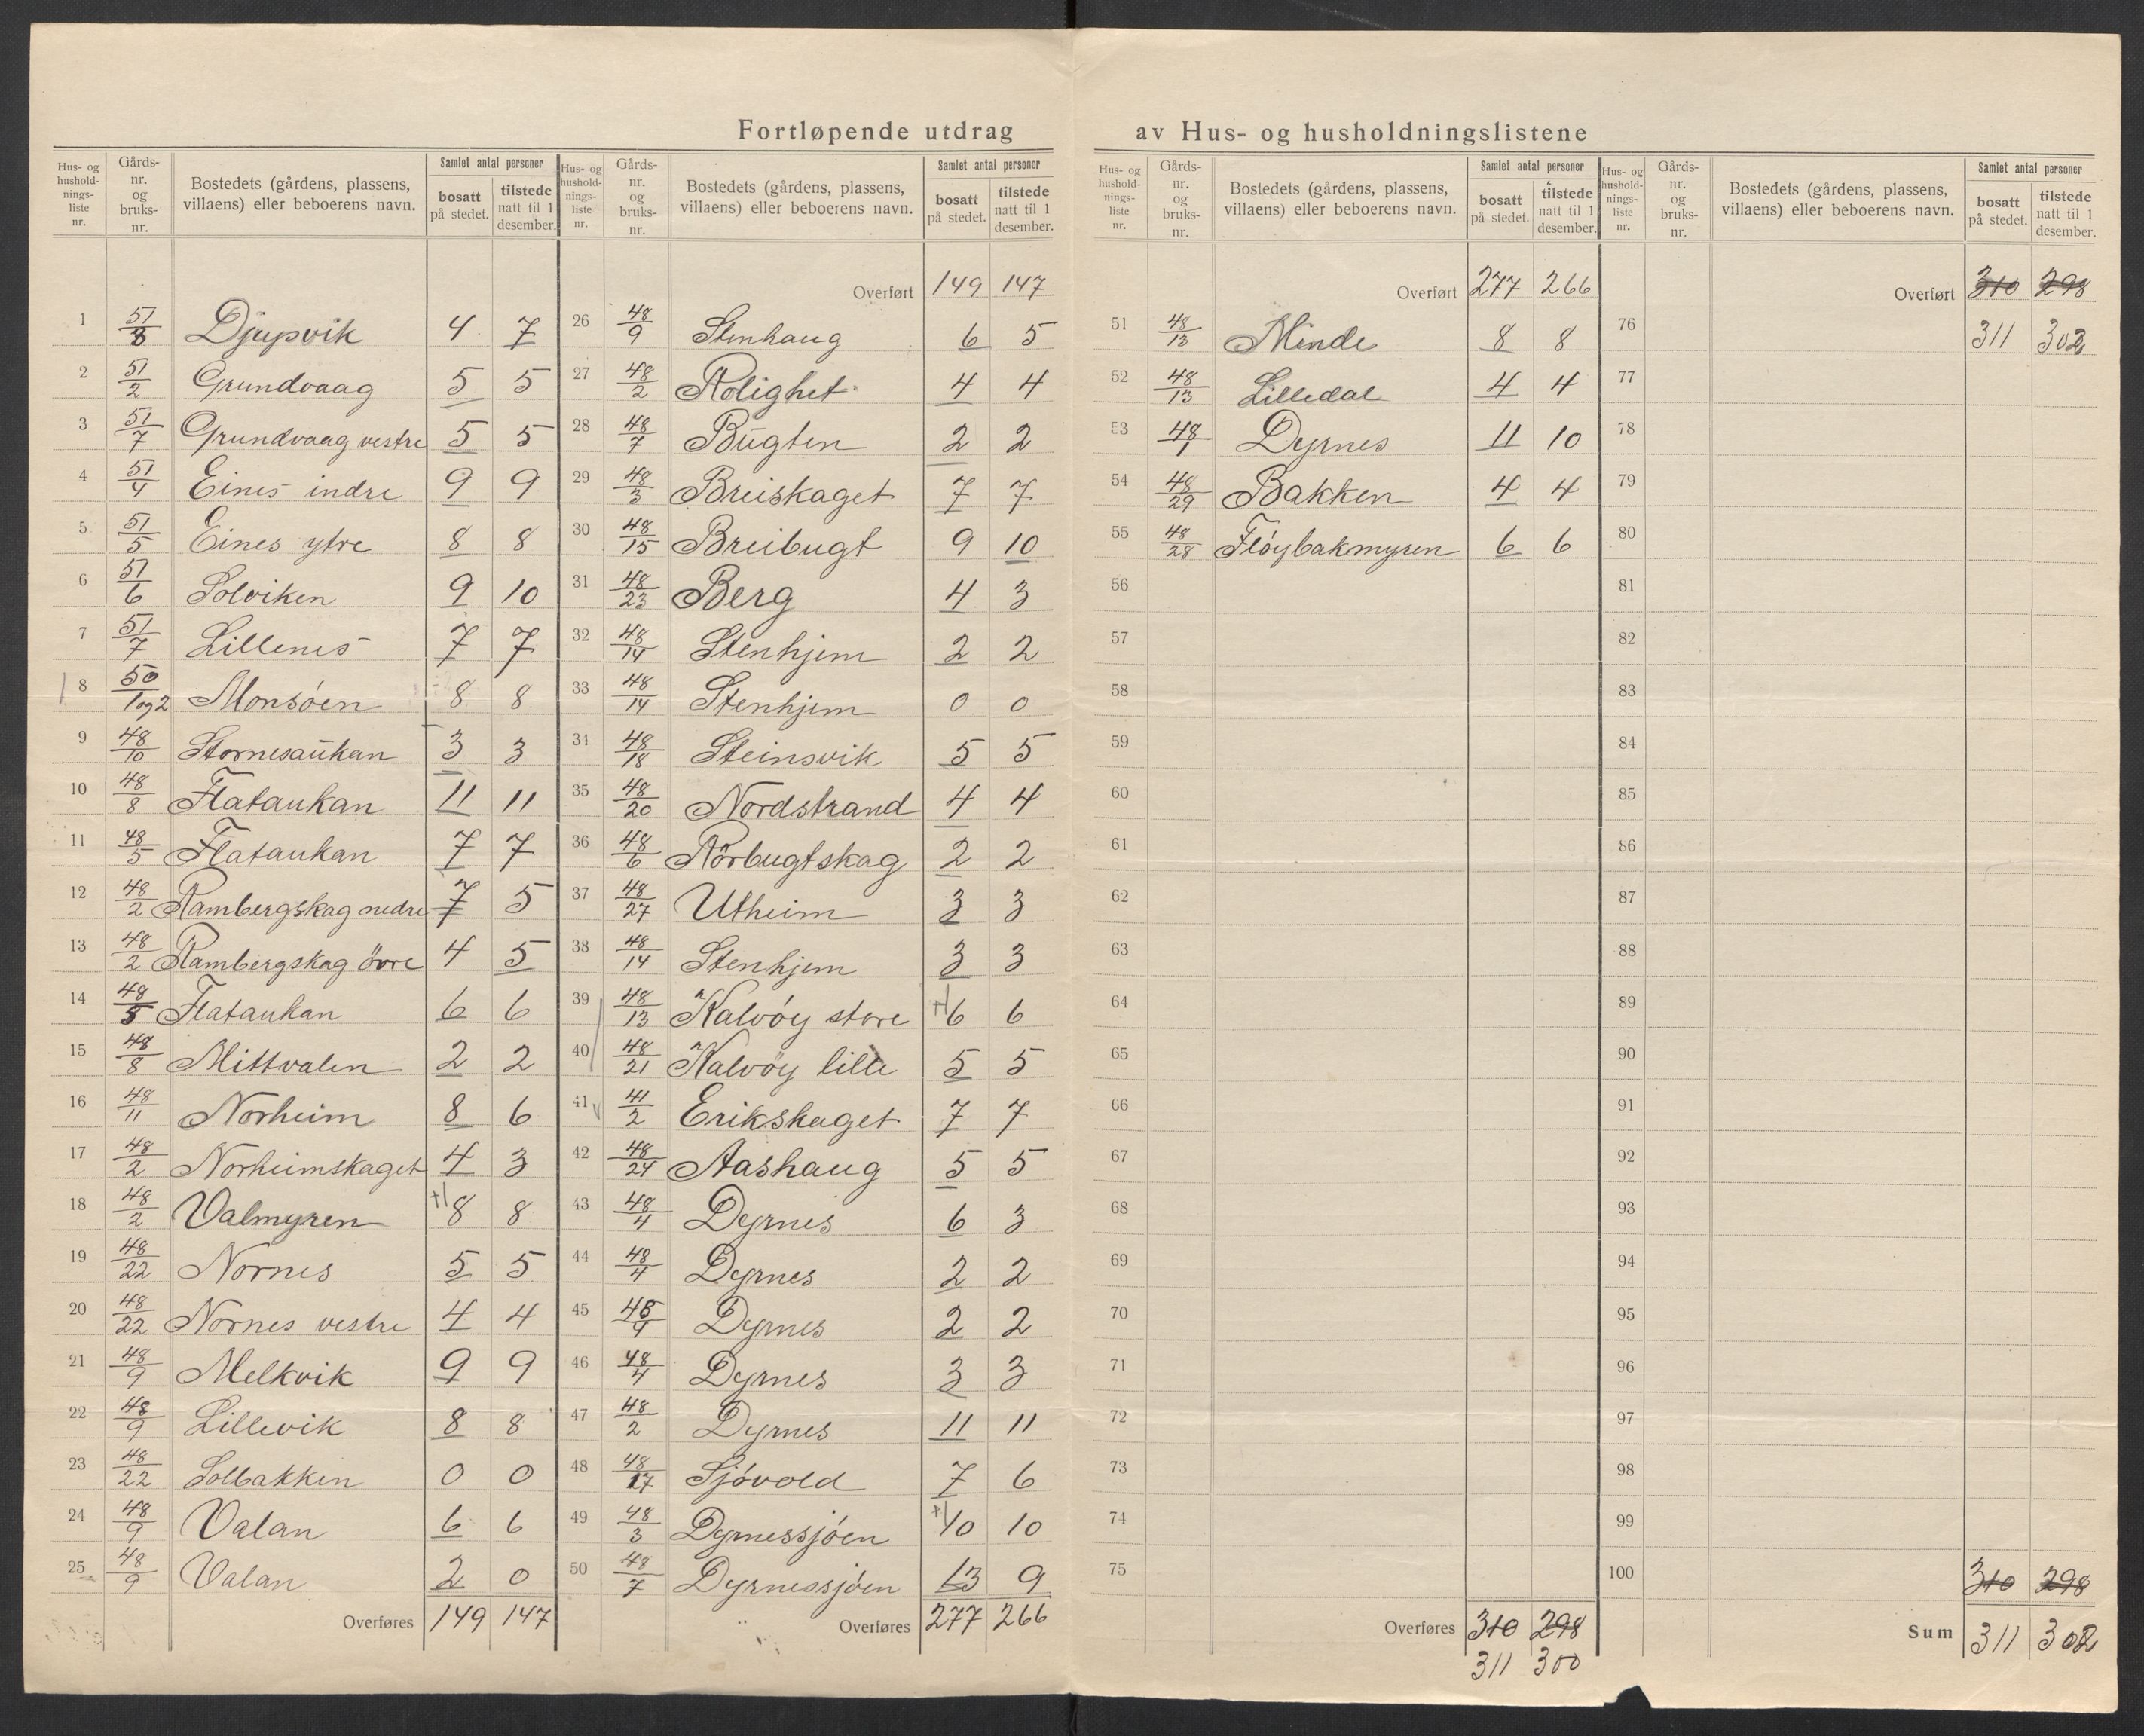 Fortløpende utdrag av Hus- og husholdningslistene
Hus- og hushold-nings-liste nr. | Gårds-nr. og bruks-nr. | Bostedets (gårdens, plassens, villaens) eller beboerens navn. | Samlet antal personer | bosatt på stedet. | tilstede natt til 1 desember.
1 51/3 Djupvik 4 7
2 51/2 Grundvaag 5 5
3 51/7 Grundvaag vestre 5 5
4 51/4 Eines indre 9 9
5 51/5 Eines ytre 8 8
6 51/6 Solviken 9 10
7 51/7 Lillenes 7 7
8 50/1og2 Monsøen 8 8
9 48/10 Stornesaukan 3 3
10 48/8 Flataukan 11 11
11 48/5 Flataukan 7 7
12 48/2 Rambergskag nedre 7 5
13 48/2 Rambergskag övre 4 5
14 48/5 Flataukan 6 6
15 48/8 Mittvalen 2 2
16 48/11 Norheim 8 6
17 48/2 Norheimskaget 4 3
18 48/2 Valmyren +1 8 8
19 48/22 Nornes 5 5
20 48/22 Nornes vestre 4 4
21 48/9 Melkvik 9 9
22 48/9 Lillevik 8 8
23 48/22 Solbakken 0 0
24 48/9 Valan 6 6
25 48/9 Valan 2 0
Overføres 149 147
Hus- og hushold-nings-liste nr. | Gårds-nr. og bruks-nr. | Bostedets (gårdens, plassens, villaens) eller beboerens navn. | Samlet antal personer | bosatt på stedet. | tilstede natt til 1 desember.
Overført 149 147
26 48/9 Stenhaug 6 5
27 48/2 Rolighet 4 4
28 48/7 Bugten 2 2
29 48/3 Breiskaget 7 7
30 48/15 Breibugt 9 10
31 48/23 Berg 4 3
32 48/14 Stenhjem 2 2
33 48/14 Stenhjem 0 0
34 48/18 Steinsvik 5 5
35 48/20 Nordstrand 4 4
36 48/6 Rörbugtskag 2 2
37 48/27 Utheim 3 3
38 48/14 Stenhjem 3 3
39 48/13 Kalvøy store +1 6 6
40 48/21 Kalvøy lille 5 5
41 41/2 Erikskaget 7 7
42 48/24 Aashaug 5 5
43 48/4 Dyrnes 6 3
44 48/4 Dyrnes 2 2
45 48/4 Dyrnes 2 2
46 48/4 Dyrnes 3 3
47 48/2 Dyrnes 11 11
48 48/17 Sjøvold 7 6
49 48/3 Dyrnessjøen +1 10 10
50 48/7 Dyrnessjøen 13 9
Overføres 277 266
Hus- og hushold-nings-liste nr. | Gårds-nr. og bruks-nr. | Bostedets (gårdens, plassens, villaens) eller beboerens navn. | Samlet antal personer | bosatt på stedet. | tilstede natt til 1 desember.
Overført 277 266
51 48/13 Minde 8 8
52 48/13 Lilledal 4 4
53 48/1 Dyrnes 11 10
54 48/29 Bakken 4 4
55 48/28 Fløybakmyren 6 6
56
57
58
59
60
61
62
63
64
65
66
67
68
69
70
71
72
73
74
75
Overføres 310 298
311 300
Hus- og hushold-nings-liste nr. | Gårds-nr. og bruks-nr. | Bostedets (gårdens, plassens, villaens) eller beboerens navn. | Samlet antal personer | bosatt på stedet. | tilstede natt til 1 desember.
Overført 310 298
76 311 302
77
78
79
80
81
82
83
84
85
86
87
88
89
90
91
92
93
94
95
96
97
98
99
100 310 298
Sum 311 302